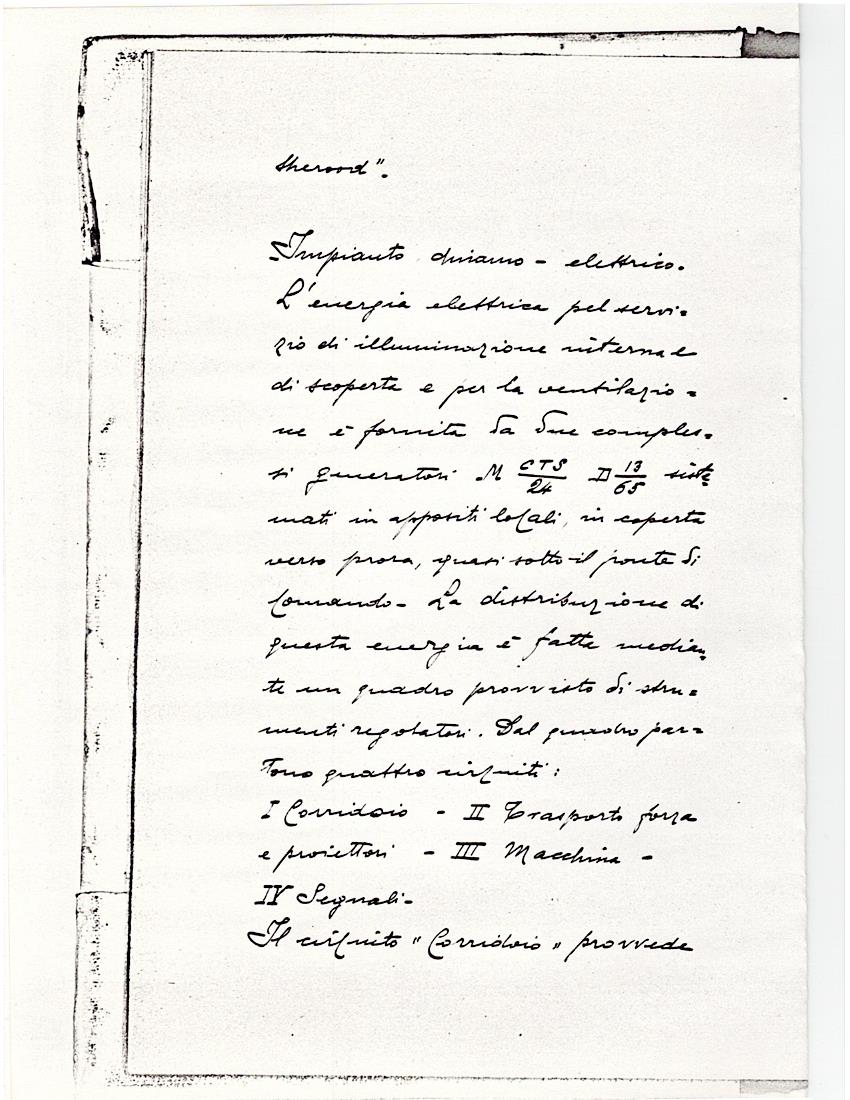 sherood".
Impianto dinamo - elettrico.
L'energia elettrica pel servi=
zio di illuminazione interna e
di scoperta e per la ventilazio=
ne è fornita da due comples=
si generatori M CTS/24 D 13/65 siste=
mati in appositi locali, in coperta
verso prora, quasi sotto il ponte di
Comando - La distribuzione di
questa energia è fatta median=
te un quadro provvisto di stru=
menti regolatori. Dal quadro par=
tono quattro circuiti:
I Corridoio - II Trasporto forza
e proiettori - III Macchina -
IV Segnali -
Il circuito "Corridoio" provvede